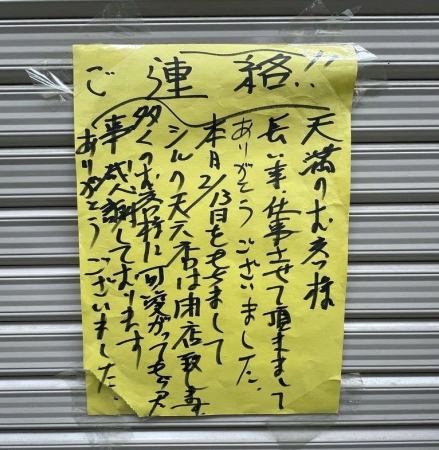 ご連絡!!
天満のお客様
長い事仕事させて頂きまして
ありがとうございました。
本月2/13日をもちまして
シルク天六店は閉店致します
多くのお客様に可愛がってもらえ
事感謝しております
ありがとうございました。